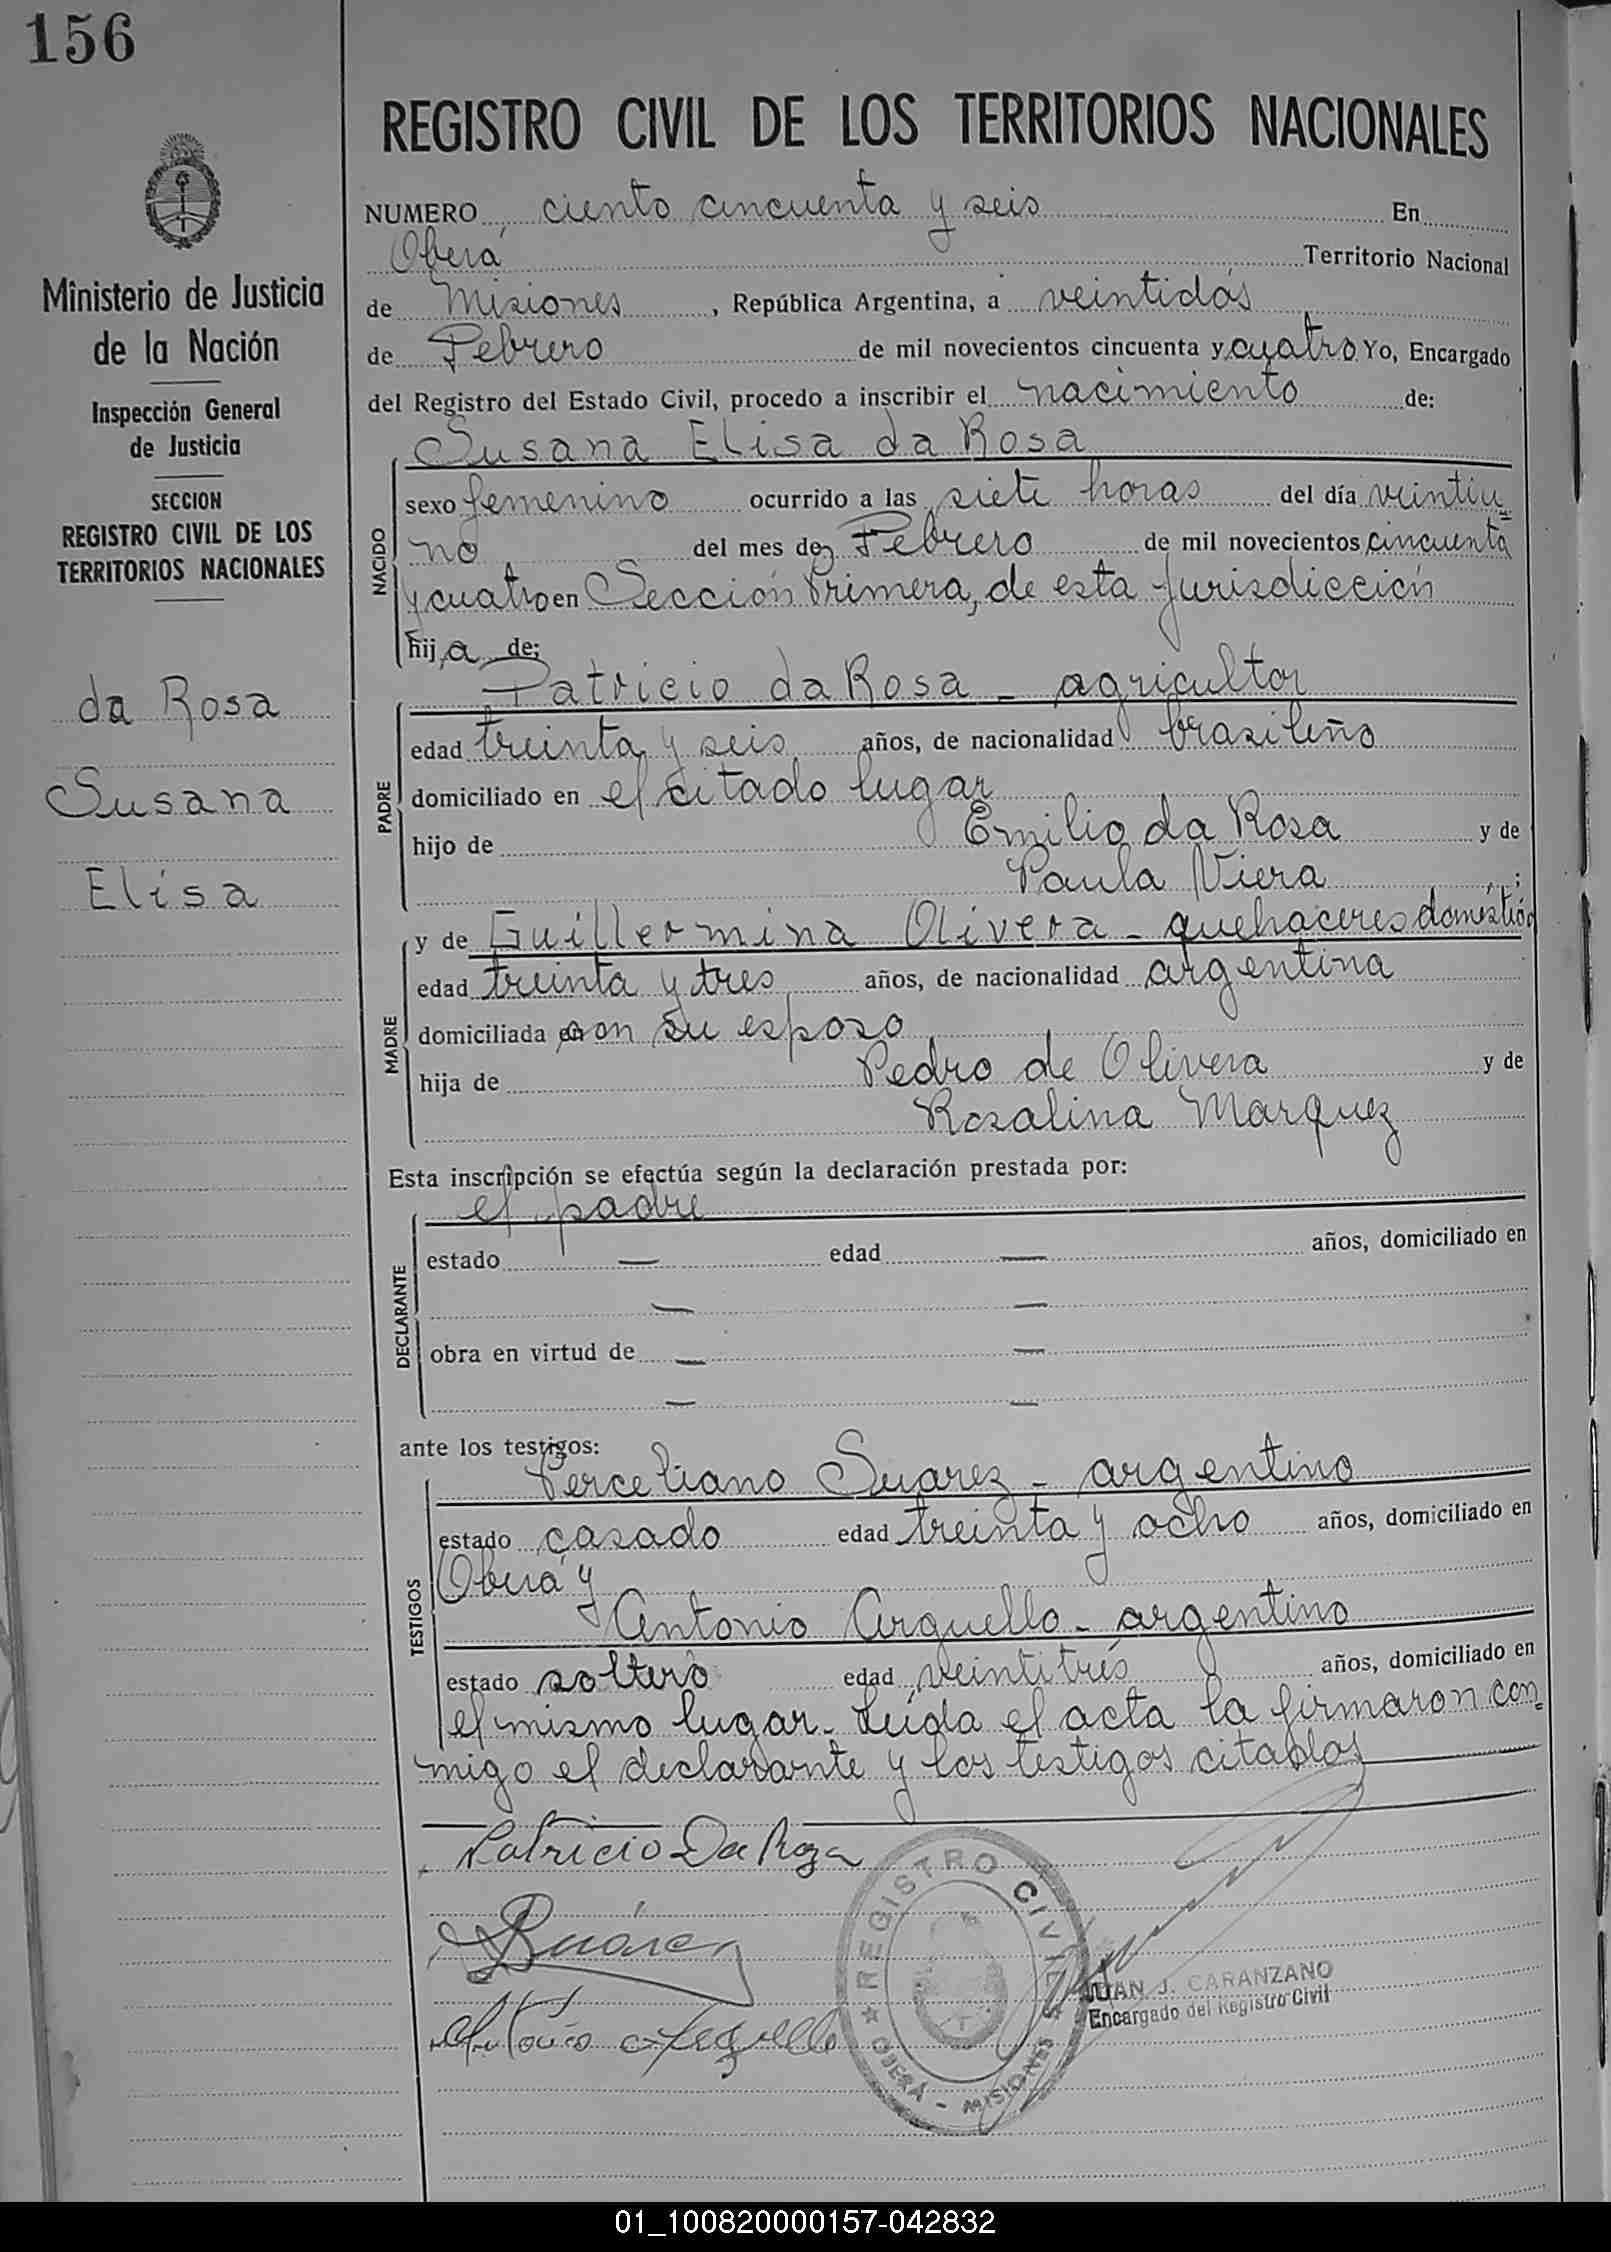 156
REGISTRO CIVIL DE LOS TERRITORIOS NACIONALES
Ministerio de Justicia
de la Nación
Inspección General
de Justicia
SECCION
REGISTRO CIVIL DE LOS
TERRITORIOS NACIONALES
da Rosa
Susana
Elisa
NUMERO ciento cincuenta y seis En
Oberá Territorio Nacional
de Misiones, República Argentina, a veintidós
de Febrero de mil novecientos cincuenta y cuatro Yo, Encargado
del Registro del Estado Civil, procedo a inscribir el nacimiento de:
Susana Elisa da Rosa
NACIDO
sexo femenino ocurrido a las siete horas del día veintiu=
no del mes de Febrero de mil novecientos cincuenta
y cuatro en Sección Primera, de esta Jurisdicción
hija de:
Patricio da Rosa - agricultor
PADRE
edad treinta y seis años, de nacionalidad brasileño
domiciliado en el citado lugar
hijo de Emilio da Rosa y de
Paula Viera ;
y de Guillermina Olivera - quehaceres domésticos
MADRE
edad treinta y tres años, de nacionalidad argentina
domiciliada con su esposo
hija de Pedro de Olivera y de
Rosalina Marquez
Esta inscripción se efectúa según la declaración prestada por:
el padre
DECLARANTE
estado — edad — años, domiciliado en
— —
obra en virtud de — —
— —
ante los testigos:
Perceliano Suarez - argentino
TESTIGOS
estado casado edad treinta y ocho años, domiciliado en
Oberá y
Antonio Arguello - argentino
estado soltero edad veintitrés años, domiciliado en
el mismo lugar. Leída el acta la firmaron con=
migo el declarante y los testigos citados
Patricio Da Roza
Suárez
Antonio Arguello
REGISTRO CIVIL
OBERÁ - MISIONES
JUAN J. CARANZANO
Encargado del Registro Civil
01_100820000157-042832